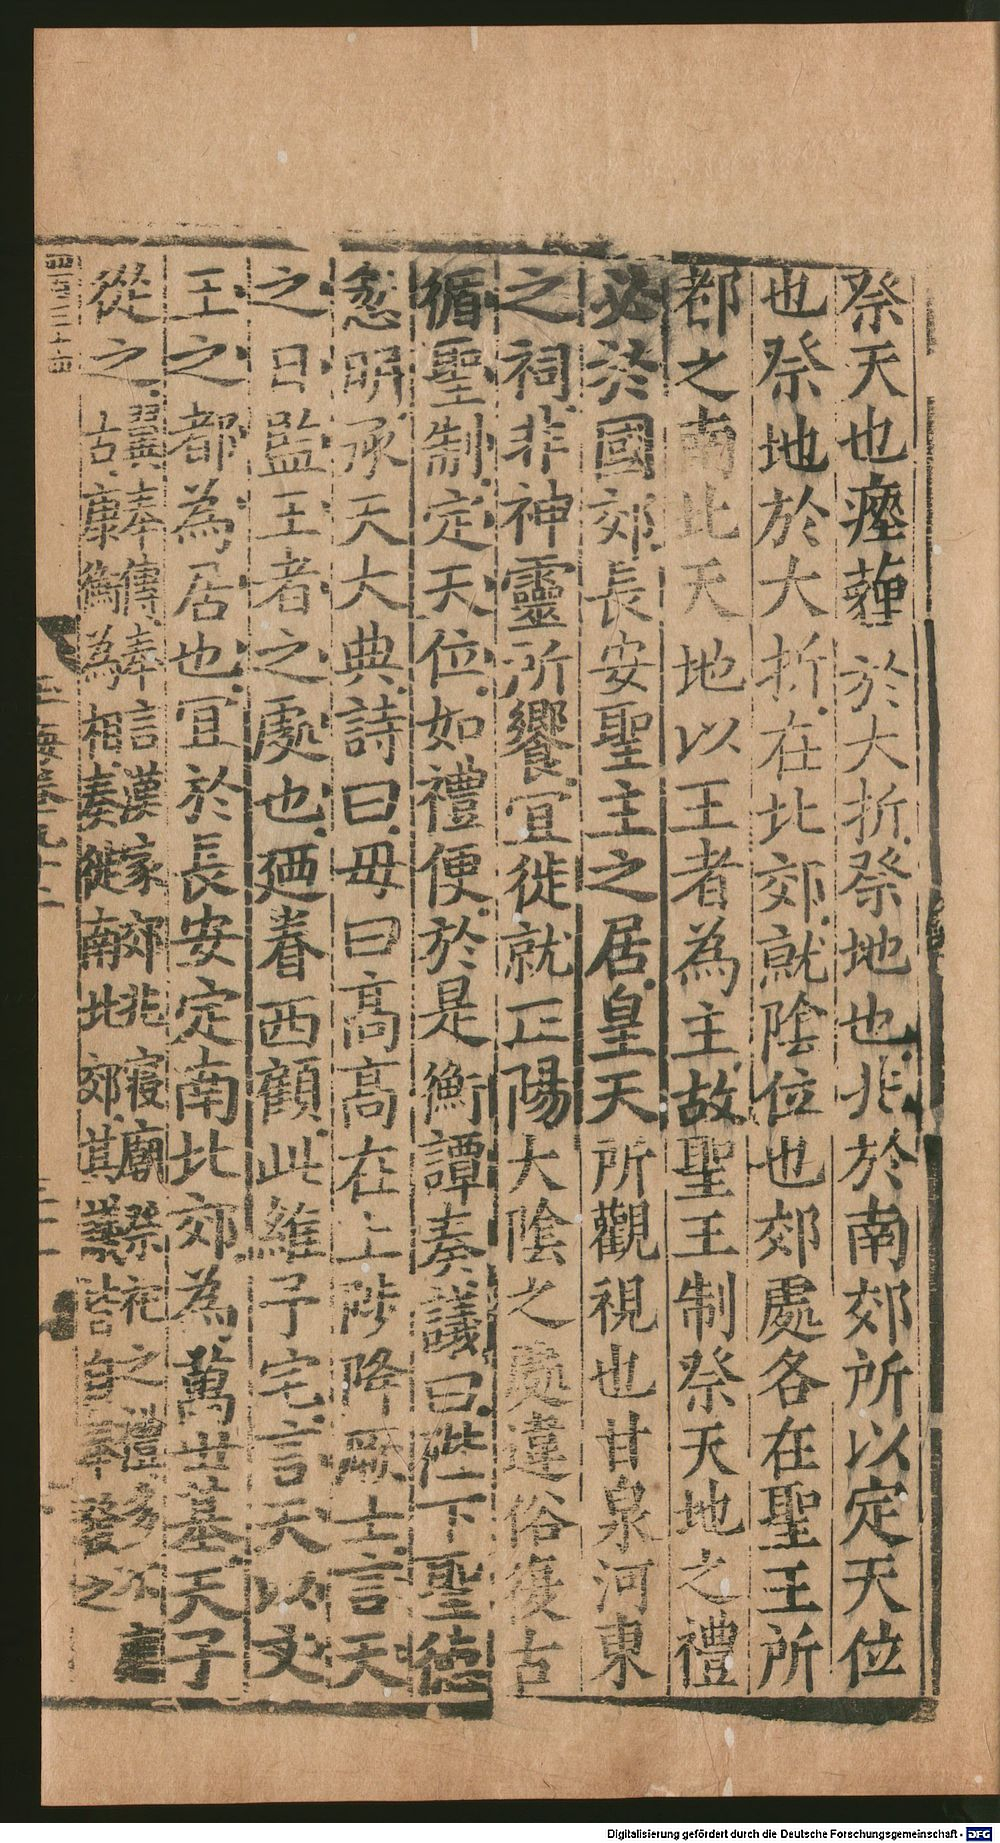 祭天也瘞薶於大折祭地也兆於南郊所以定天位
也祭地於大折在北郊就陰位也郊處各在聖王所
都之南北天地以王者為主故聖王制祭天地之禮
必於國郊長安聖主之居皇天所觀視也甘泉河東
之祠非神靈所饗宜徙就正陽大陰之處違俗復古
循聖制定天位如禮便於是衡譚奏議曰陛下聖德
怱明承天大典詩曰毋曰高高在上陟降厥士言天
之日監王者之處也廼眷西顧此維予宅言天以文
王之都為居也宜於長安定南北郊為萬世基天子
從之
翼奉傳奉言漢家郊兆寢廟祭祀之禮多不
古康衡為相奏徙南北郊其議皆自奉發之
四百三十
玉海卷九十二
Digitalisierung gefördert durch die Deutsche Forschungsgemeinschaft - DFG